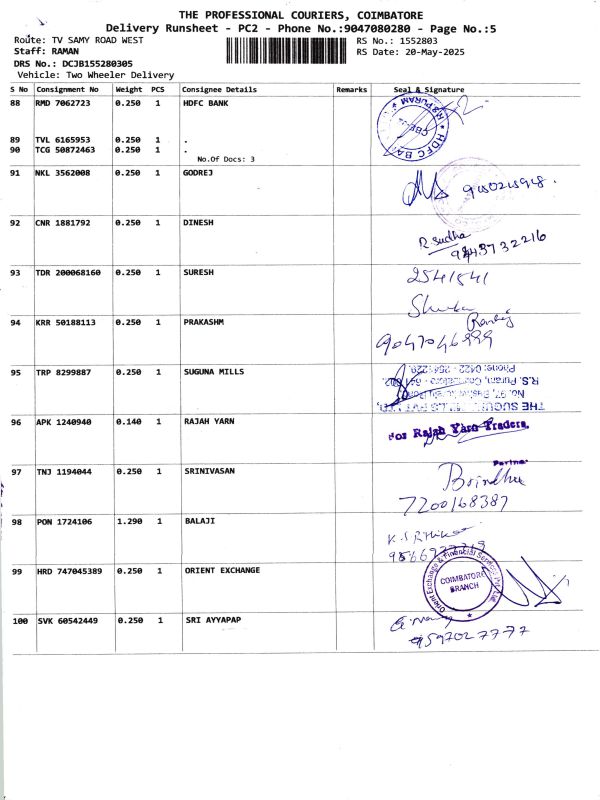 THE PROFESSIONAL COURIERS, COIMBATORE
Delivery Runsheet - PC2 - Phone No.:9047080280 - Page No.:5
Route: TV SAMY ROAD WEST RS No.: 1552803
Staff: RAMAN RS Date: 20-May-2025
DRS No.: DCJB155280305
Vehicle: Two Wheeler Delivery
S No Consignment No Weight PCS Consignee Details Remarks Seal & Signature
88 RMD 7062723 0.250 1 HDFC BANK
HDFC BANK R S PURAM
89 TVL 6165953 0.250 1 .
90 TCG 50872463 0.250 1 .
No.Of Docs: 3
91 NKL 3562008 0.250 1 GODREJ
92 CNR 1881792 0.250 1 DINESH
R. Sudha
93 TDR 200068160 0.250 1 SURESH
2541541
94 KRR 50188113 0.250 1 PRAKASHM
9047046999
95 TRP 8299887 0.250 1 SUGUNA MILLS
96 APK 1240940 0.140 1 RAJAH YARN
For Rajah Yarn Traders,
Partner
97 TNJ 1194044 0.250 1 SRINIVASAN
Brindha
7200168387
98 PON 1724106 1.290 1 BALAJI
99 HRD 747045389 0.250 1 ORIENT EXCHANGE
Orient Exchange & Financial Services Pvt Ltd
COIMBATORE
BRANCH
100 SVK 60542449 0.250 1 SRI AYYAPAP
9597027777